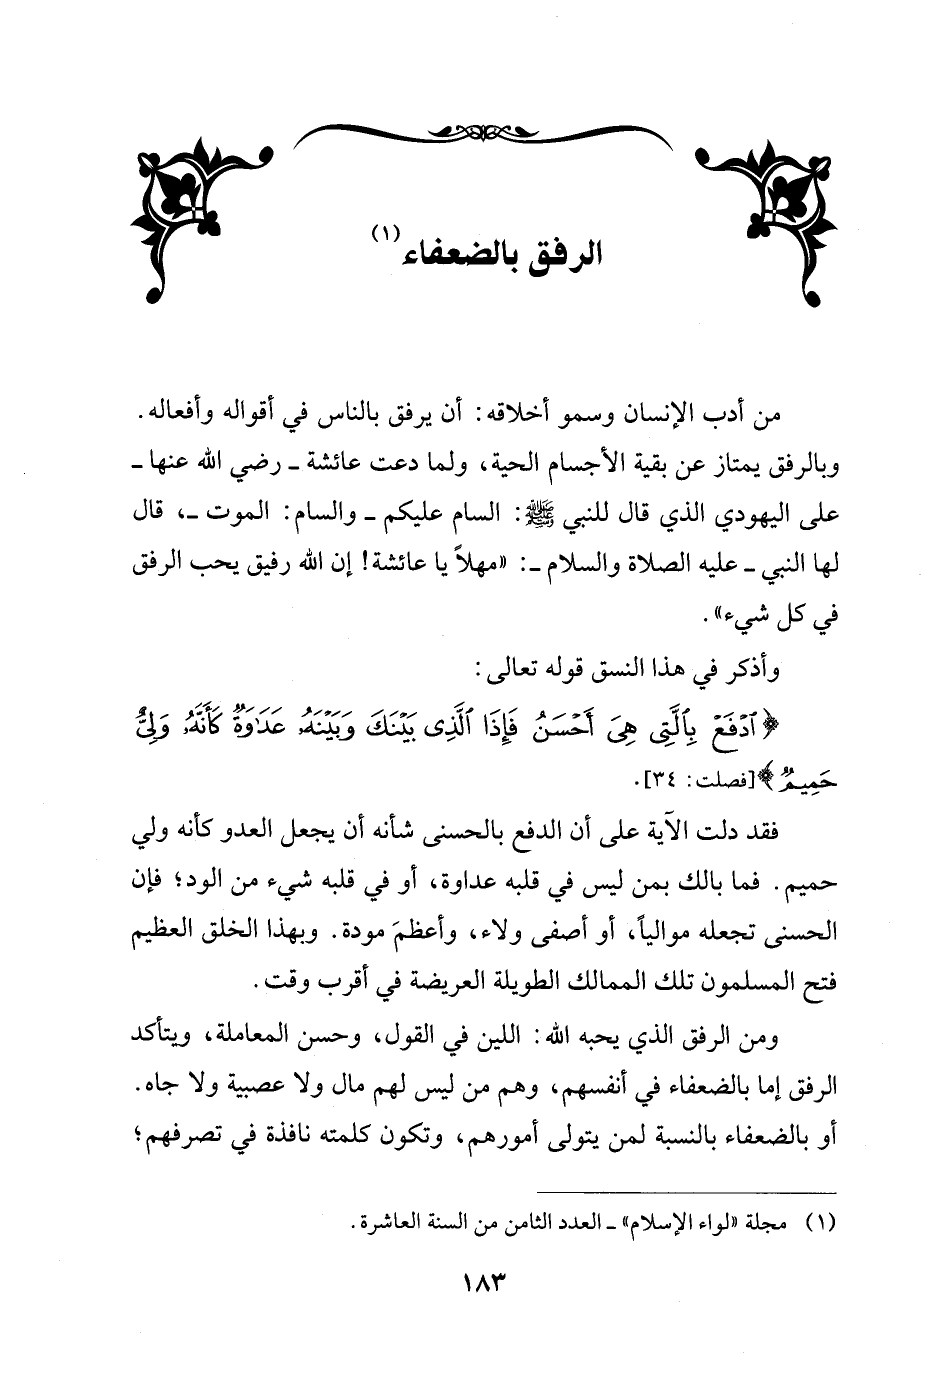 الرفق بالضعفاء(١)
من أدب الإنسان وسمو أخلاقه: أن يرفق بالناس في أقواله وأفعاله.
وبالرفق يمتاز عن بقية الأجسام الحية، ولما دعت عائشة ـ رضي الله عنها ـ
على اليهودي الذي قال للنبي ﷺ: السام عليكم ـ والسام: الموت ـ، قال
لها النبي ـ عليه الصلاة والسلام ـ: «مهلاً يا عائشة! إن الله رفيق يحب الرفق
في كل شيء».
وأذكر في هذا النسق قوله تعالى:
﴿ٱدْفَعْ بِٱلَّتِى هِىَ أَحْسَنُ فَإِذَا ٱلَّذِى بَيْنَكَ وَبَيْنَهُۥ عَدَٰوَةٌ كَأَنَّهُۥ وَلِىٌّ
حَمِيمٌ﴾[فصلت: ٣٤].
فقد دلت الآية على أن الدفع بالحسنى شأنه أن يجعل العدو كأنه ولي
حميم. فما بالك بمن ليس في قلبه عداوة، أو في قلبه شيء من الود؛ فإن
الحسنى تجعله موالياً، أو أصفى ولاء، وأعظمَ مودة. وبهذا الخلق العظيم
فتح المسلمون تلك الممالك الطويلة العريضة في أقرب وقت.
ومن الرفق الذي يحبه الله: اللين في القول، وحسن المعاملة، ويتأكد
الرفق إما بالضعفاء في أنفسهم، وهم من ليس لهم مال ولا عصبية ولا جاه.
أو بالضعفاء بالنسبة لمن يتولى أمورهم، وتكون كلمته نافذة في تصرفهم؛
(١) مجلة «لواء الإسلام» ـ العدد الثامن من السنة العاشرة.
١٨٣